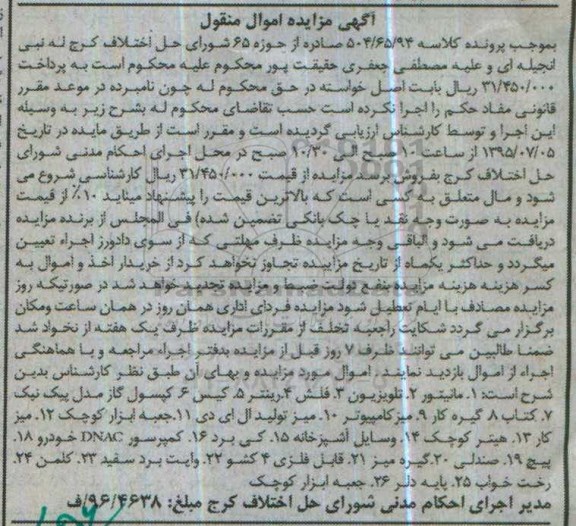 آگهی مزایده اموال منقول
بموجب پرونده کلاسه ۵۰۴/۶۵/۹۴ صادره از حوزه ۶۵ شورای حل اختلاف کرج له نبی
انجیله ای و علیه مصطفی جعفری حقیقت پور محکوم علیه محکوم است به پرداخت
۳۱/۴۵۰/۰۰۰ ریال بابت اصل خواسته در حق محکوم له چون نامبرده در موعد مقرر
قانونی مفاد حکم را اجرا نکرده است حسب تقاضای محکوم له بشرح زیر به وسیله
این اجرا و توسط کارشناس ارزیابی گردیده است و مقرر است از طریق مایده در تاریخ
۱۳۹۵/۰۷/۰۵ از ساعت ۱۰ صبح الی ۱۰/۳۰ صبح در محل اجرای احکام مدنی شورای
حل اختلاف کرج بفروش برسد مزایده از قیمت ۳۱/۴۵۰/۰۰۰ ریال کارشناسی شروع می
شود و مال متعلق به کسی است که بالاترین قیمت را پیشنهاد میناید ۱۰٪ از قیمت
مزایده به صورت وجه نقد یا چک بانکی تضمین شده) فی المجلس از برنده مزایده
دریافت می شود و الباقی وجه مزایده ظرف مهلتی که از سوی دادورز اجراء تعیین
میگردد و حداکثر یکماه از تاریخ مزاییده تجاوز نخواهد کرد از خریدار اخذ و اموال به
کسر هزینه هزینه مزایده بنفع دولت ضبط و مزایده تجدید خواهد شد در صورتیکه روز
مزایده مصادف با ایام تعطیل شود مزایده فردای اداری همان روز در همان ساعت ومکان
برگزار می گردد شکایت راجعبه تخلف از مقررات مزایده ظرف یک هفته از نخواد شد
ضمنا طالبین می توانند ظرف ۷ روز قبل از مزایده بدفتر اجراء مراجعه و با هماهنگی
اجراء از اموال بازدید نمایند. اموال مورد مزایده و بهای آن طبق نظر کارشناس بدین
شرح است: ۱. مانیتور ۲. تلویزیون ۳. فلش ۴.رینتر ۵. کیس ۶. کپسول گاز مدل پیک نیک
۷. کتاب ۸. گیره کار ۹. میزکامپیوتر ۱۰. میز تولید ال ای دی ۱۱.جعبه ابزار کوچک ۱۲. میز
کار ۱۳. هیتر کوچک ۱۴. وسایل آشپزخانه ۱۵. کی برد ۱۶. کمپرسور DNAC خودرو ۱۸.
پیچ ۱۹. صندلی ۲۰.گیره میز ۲۱. فایل فلزی ۴ کشو ۲۲. وایت برد سفید ۲۳. کلمن ۲۴.
رخت خواب ۲۵. پایه دلر ۲۶. جعبه ابزار کوچک
مدیر اجرای احکام مدنی شورای حل اختلاف کرج مبلغ: ۹۶/۴۶۳۸/ف